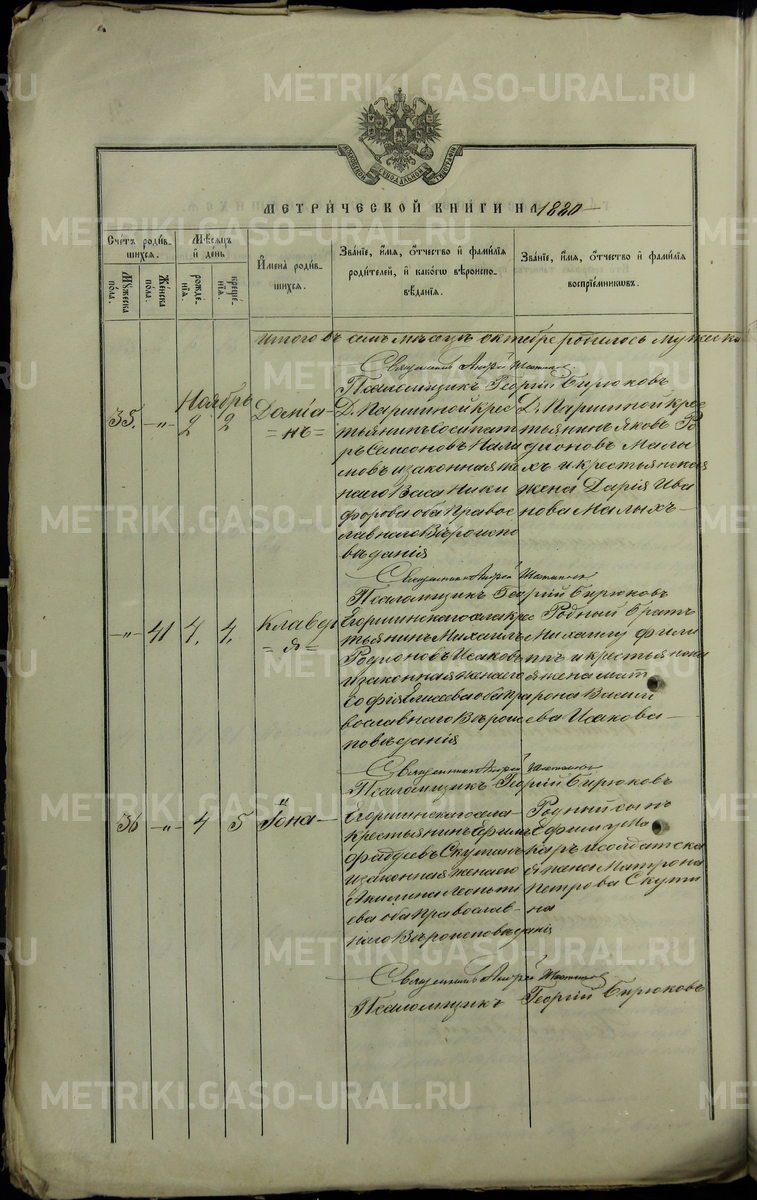 METRIKI.GASO-URAL.RU
МЕТРИ́ЧЕСКОЙ КНИ́ГИ НА 1880
Сче́тъ роди́в-
шихся.
Му́жеска
по́ла.
Же́нска
по́ла.
Мѣ́сяцъ
и҆ де́нь
рожде-
нїѧ.
креще-
нїѧ.
И҆мена̀ роди́в-
шихся.
Зва́нїе, и҆́мѧ, ѻ҆́тчество и҆ фами́лїѧ
роди́телей, и҆ како́гѡ вѣроиспо-
вѣ́данїѧ.
Зва́нїе, и҆́мѧ, ѻ҆́тчество и҆ фами́лїѧ
воспрїе́мникѡвъ.
Итого въ семъ мѣсяцѣ октябре родилось мужеска
Священникъ Андрей
Псаломщикъ Георгій Бирюковъ
35. -„- Ноябрь 2 2
Доміа-
= нъ =
Д. Паршиной крес
тьянинъ Сосипат
ръ Семеоновъ Мали
новъ и законная же
наго Васа Ники
форова оба Правос
лавнаго Вѣроиспо
вѣданія
Д. Паршиной крес
тьянинъ Яковъ Ро
діоновъ Малы
хъ и крестьянская
жена Дарія Ива
нова Малыхъ
Священникъ Андрей
Псаломщикъ Георгій Бирюковъ
-„- 41 4. 4.
Клавді
= я =
Егоршинскаго села кре
тьянинъ Михаилъ
Родионовъ Исаковъ
и законная жена его
Софія Елисеева оба Пра
вославнаго Вѣрои
повѣданія
Родный братъ
Михаилу Фили
ппъ и крестьянска
я жена Мат
рона Васил
ева Исакова
Священникъ Андрей
Псаломщикъ Георгій Бирюковъ
36 -„- 4 5
Іона
Егоршинскаго села
крестьянинъ Ефимъ
Фадеевъ Скутинъ
и законная жена его
Акилина Леонтi
ева оба Православ-
наго Вѣроисповѣданія
Родный сынъ
Ефиму Ма
каръ и солдатска
я жена Матрона
Петрова Скути
на
Священникъ Андрей
Псаломщикъ Георгій Бирюковъ